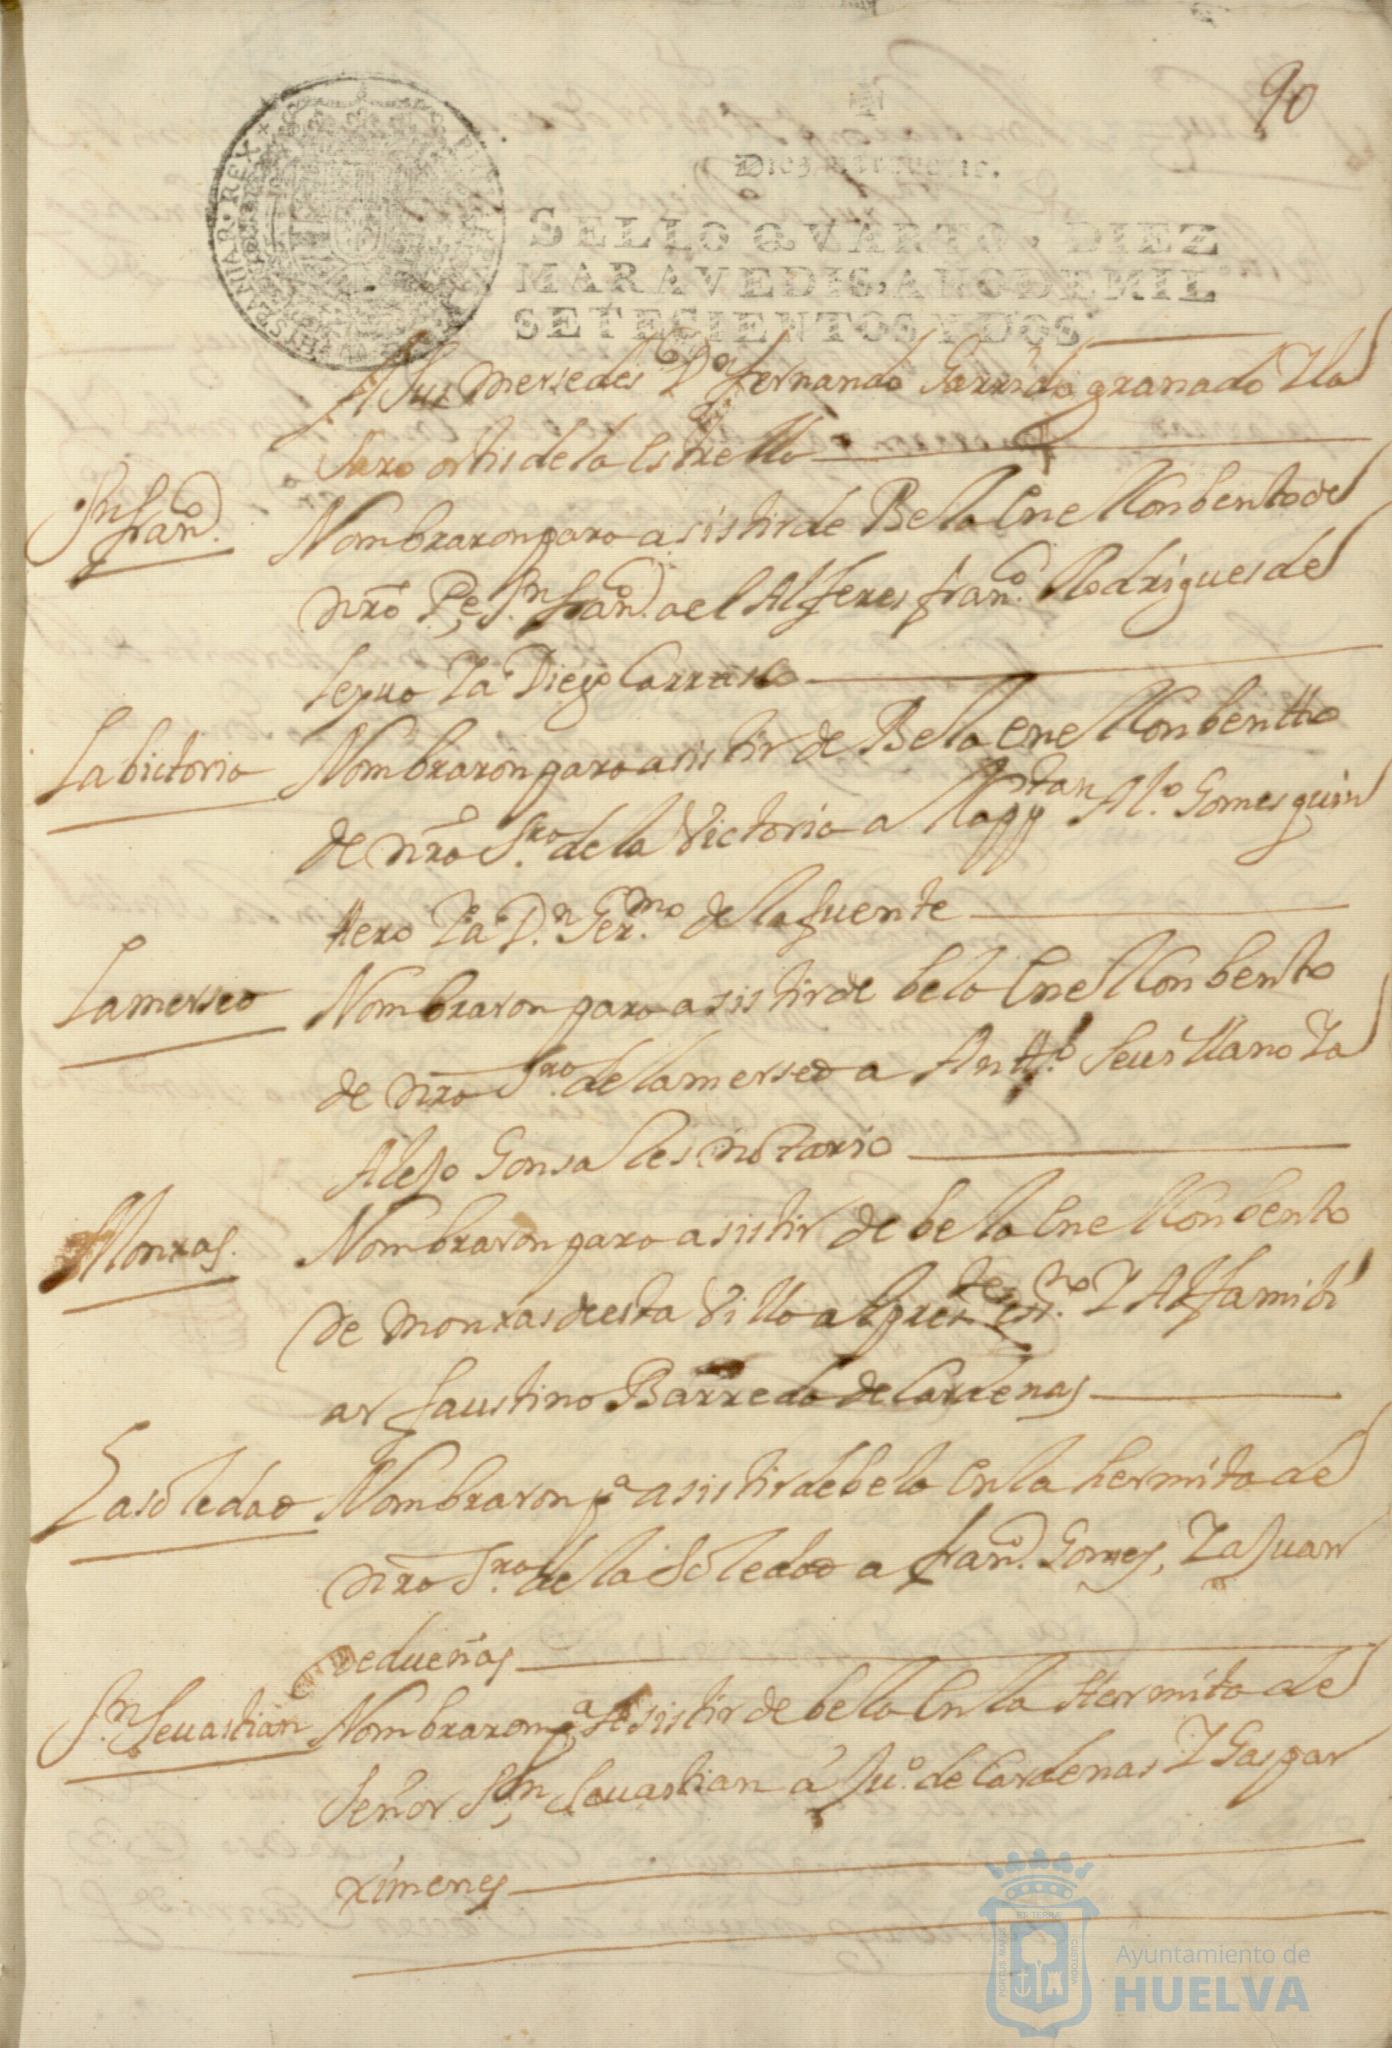 90
HISPANIAR. REX
Diez maravedis.
SELLO QVARTO, DIEZ
MARAVEDIS, AÑO DE MIL
SETECIENTOS Y DOS
A Sus Mersedes Dn fernando Garrido granado Y La
Saro ortis de la estrella
Sn franco. Nombraron para asistir de Bela en el Conbento de
nro Pe Sn franco. a el Alferes franco. Rodrigues de
Lepua Ya Diego Carrasco
La bictoria Nombraron para asistir de Bela en el Conbentto
de nra Sra. de la Victoria a Cappitan Alo. Gomes quin
tero Ya Dn. Germo. de la fuente
La mersed Nombraron para asistir de bela en el Conbento
de nra Sra. de la mersed a Antto. Seuillano Ya
Alejo Gonsales notario
Monxas. Nombraron para asistir de bela en el Conbento
de monxas de esta Villa al prete. esno. Y Al famili
ar faustino Barreda de Cardenas
La soledad Nombraron pa asistir de bela en la hermita de
nra Sra. de la Soledad a franco. Gomes, Ya Juan
de dueñas
Sn. Seuastian Nombraron pa asistir de bela en la Hermita de
Señor Sn, Seuastian a Juo. de Cardenas Y Gaspar
ximenes
PORTUS MARIS ET TERRE CUSTODIA
Ayuntamiento de
HUELVA